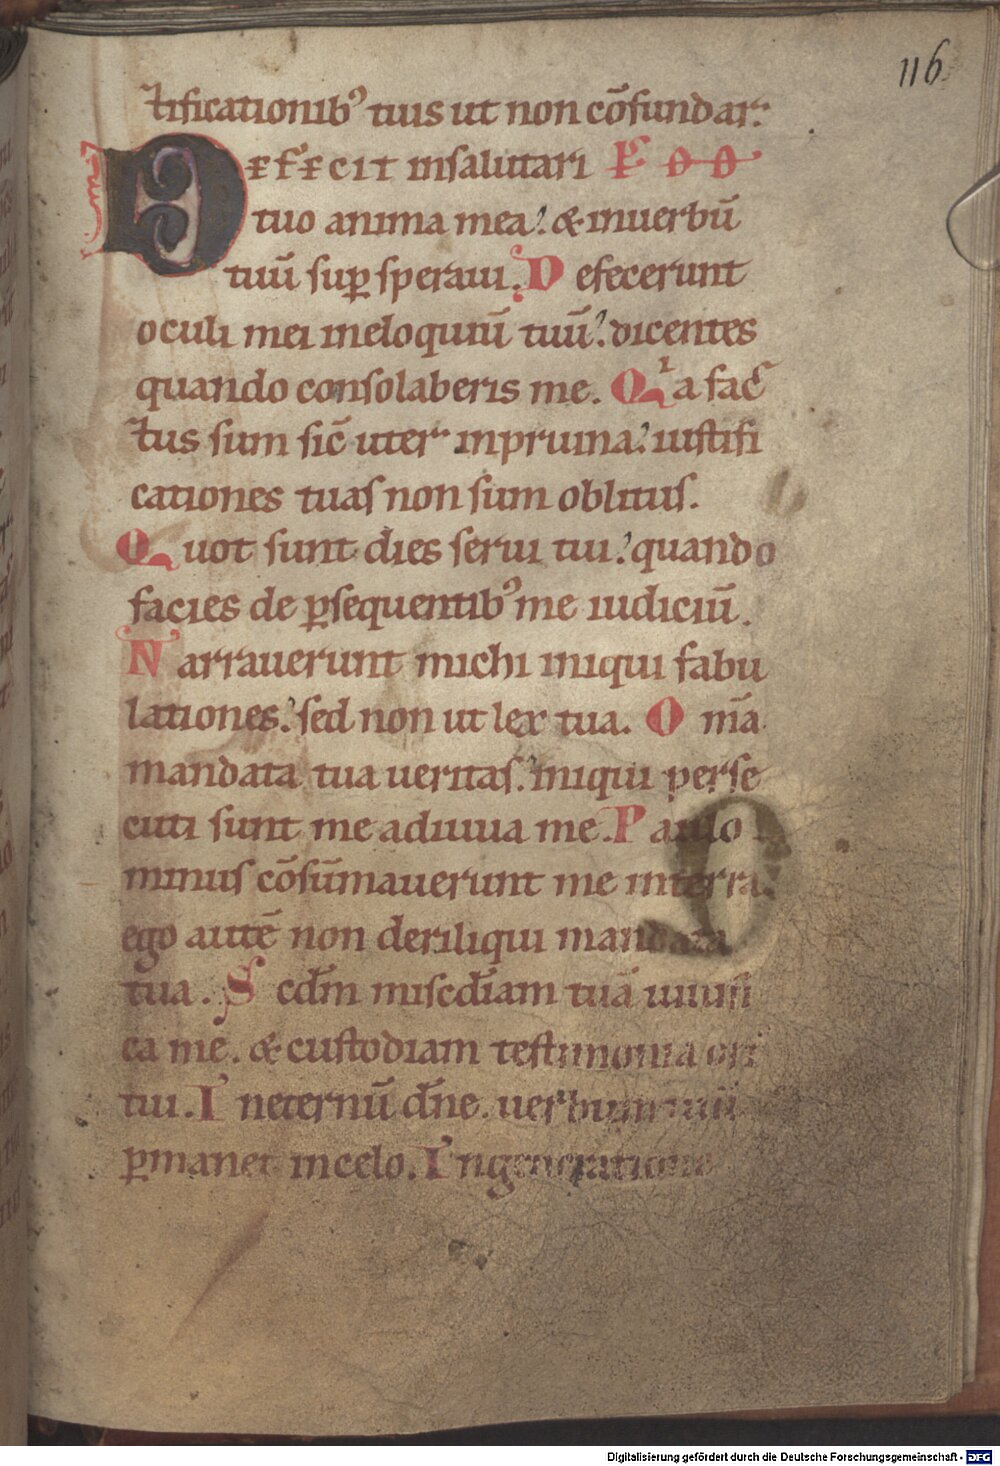 116
tificationib᾽ tuis ut non cōfundar.
DEFECIT insalutari
tuo anima mea? & inuerbū
tuū sup speraui. Defecerunt
oculi mei ineloquiū tuū? dicentes
quando consolaberis me. Qⁱa fac
tus sum sic̄ uter inpruina? iustifi
cationes tuas non sum oblitus.
Quot sunt dies serui tui? quando
facies de ꝑsequentib᾽ me iudiciū.
Narrauerunt michi iniqui fabu
lationes? sed non ut lex tua. Om̄a
mandata tua ueritas? iniqui perse
cuti sunt me adiuua me. Paulo
minus cōsūmauerunt me interra.
ego autē non deriliqui mandata
tua. Scd̄m misc̄diam tuā uiuifi
ca me. & custodiam testimonia ori
tui. Ineternū dn̄e. uerbum tuū
ꝑmanet incelo. Ingeneratione
Digitalisierung gefördert durch die Deutsche Forschungsgemeinschaft - DFG